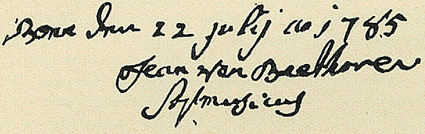 Bonn den 22 julij ao 1785
Jean van Beethoven
Musicus